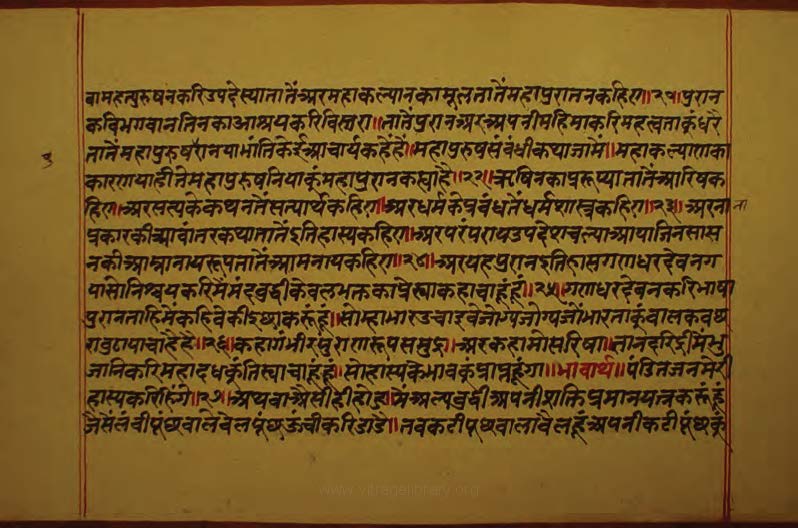 वामहत्पुरुषनकरिउपदेस्यातातैंअरमहाकल्यानकामूलतातैंमहापुरातनकहिए॥२१॥पुरान
कविभगवानतिनकाआश्रयकरिविस्तरा॥तातैंपुरानअरअपनीमहिमाकरिमहत्वताकूंधरै
तातैंमहापुरुषरानयाभांतिकेईआचार्यकहैहैं॥महापुरुषसंबंधीकथाजामैं॥महाकल्याणका
कारणयाहीतैमहापुरुषनियाकूंमहापुरानकह्याहै॥२२॥ऋषिनकाप्ररूप्यातातैंआरिषक
हिए॥अरसत्यकेकथनतैसत्यार्थकहिए॥अरधर्मकेप्रबंधतैंधर्मशास्त्रकहिए॥२३॥अरनाना
प्रकारकीआवांतरकथातातैंइतिहास्यकहिए॥अरपरंपरायउपदेशचल्याआयाजिनसास
नकीआम्नानायरूपतातैंआमनायकहिए॥२४॥अरयहपुरानइतिहासगणधरदेवनग
र्यासोनिश्चयकरिमैंमंदबुद्धीकेवलभक्तकाप्रेस्याकहाचाहूंहूं॥२५॥गणधरदेवनकरिभाषा
पुरानताहिमैंकहिवेकीइच्छाकरूंहूं॥सोम्हाभारउचाइवेजोग्यजोग्यजोभारताकूंबालकवच्छ
राउठायाचाहैहै॥२६॥कहागंभीरपुराणरूपसमुद्र॥अरकहामोसरिषा॥तानदरिद्रीमैंभु
जानिकरिमहादधकूंतिस्याचाहूंहूं॥मोहास्यकेभावकूंप्राप्तहूंगा॥भावार्थ॥पंडितजनमेरी
हास्यकरिहिंगे॥२७॥अथवाअैसीहीहोहुमैंअल्पबुद्धीअपनीशक्तिप्रमानयत्नकरूंहूं
जैसैंलंबीपूंछवालेबेलपूंछऊंचीकरिडाडे॥तबकटीपूंछवालाबैलहूंअपनीकटीपूंछकूं
www.vitragelibrary.org